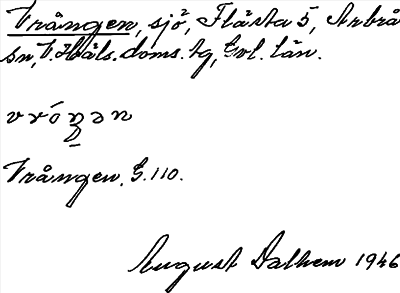 Vrången, sjö, Flästa 5, Arbrå
sn, V. Häls. doms. tg, Gvl. län.
vróŋən
Vrången, G. 110.
August Dalhem 1946